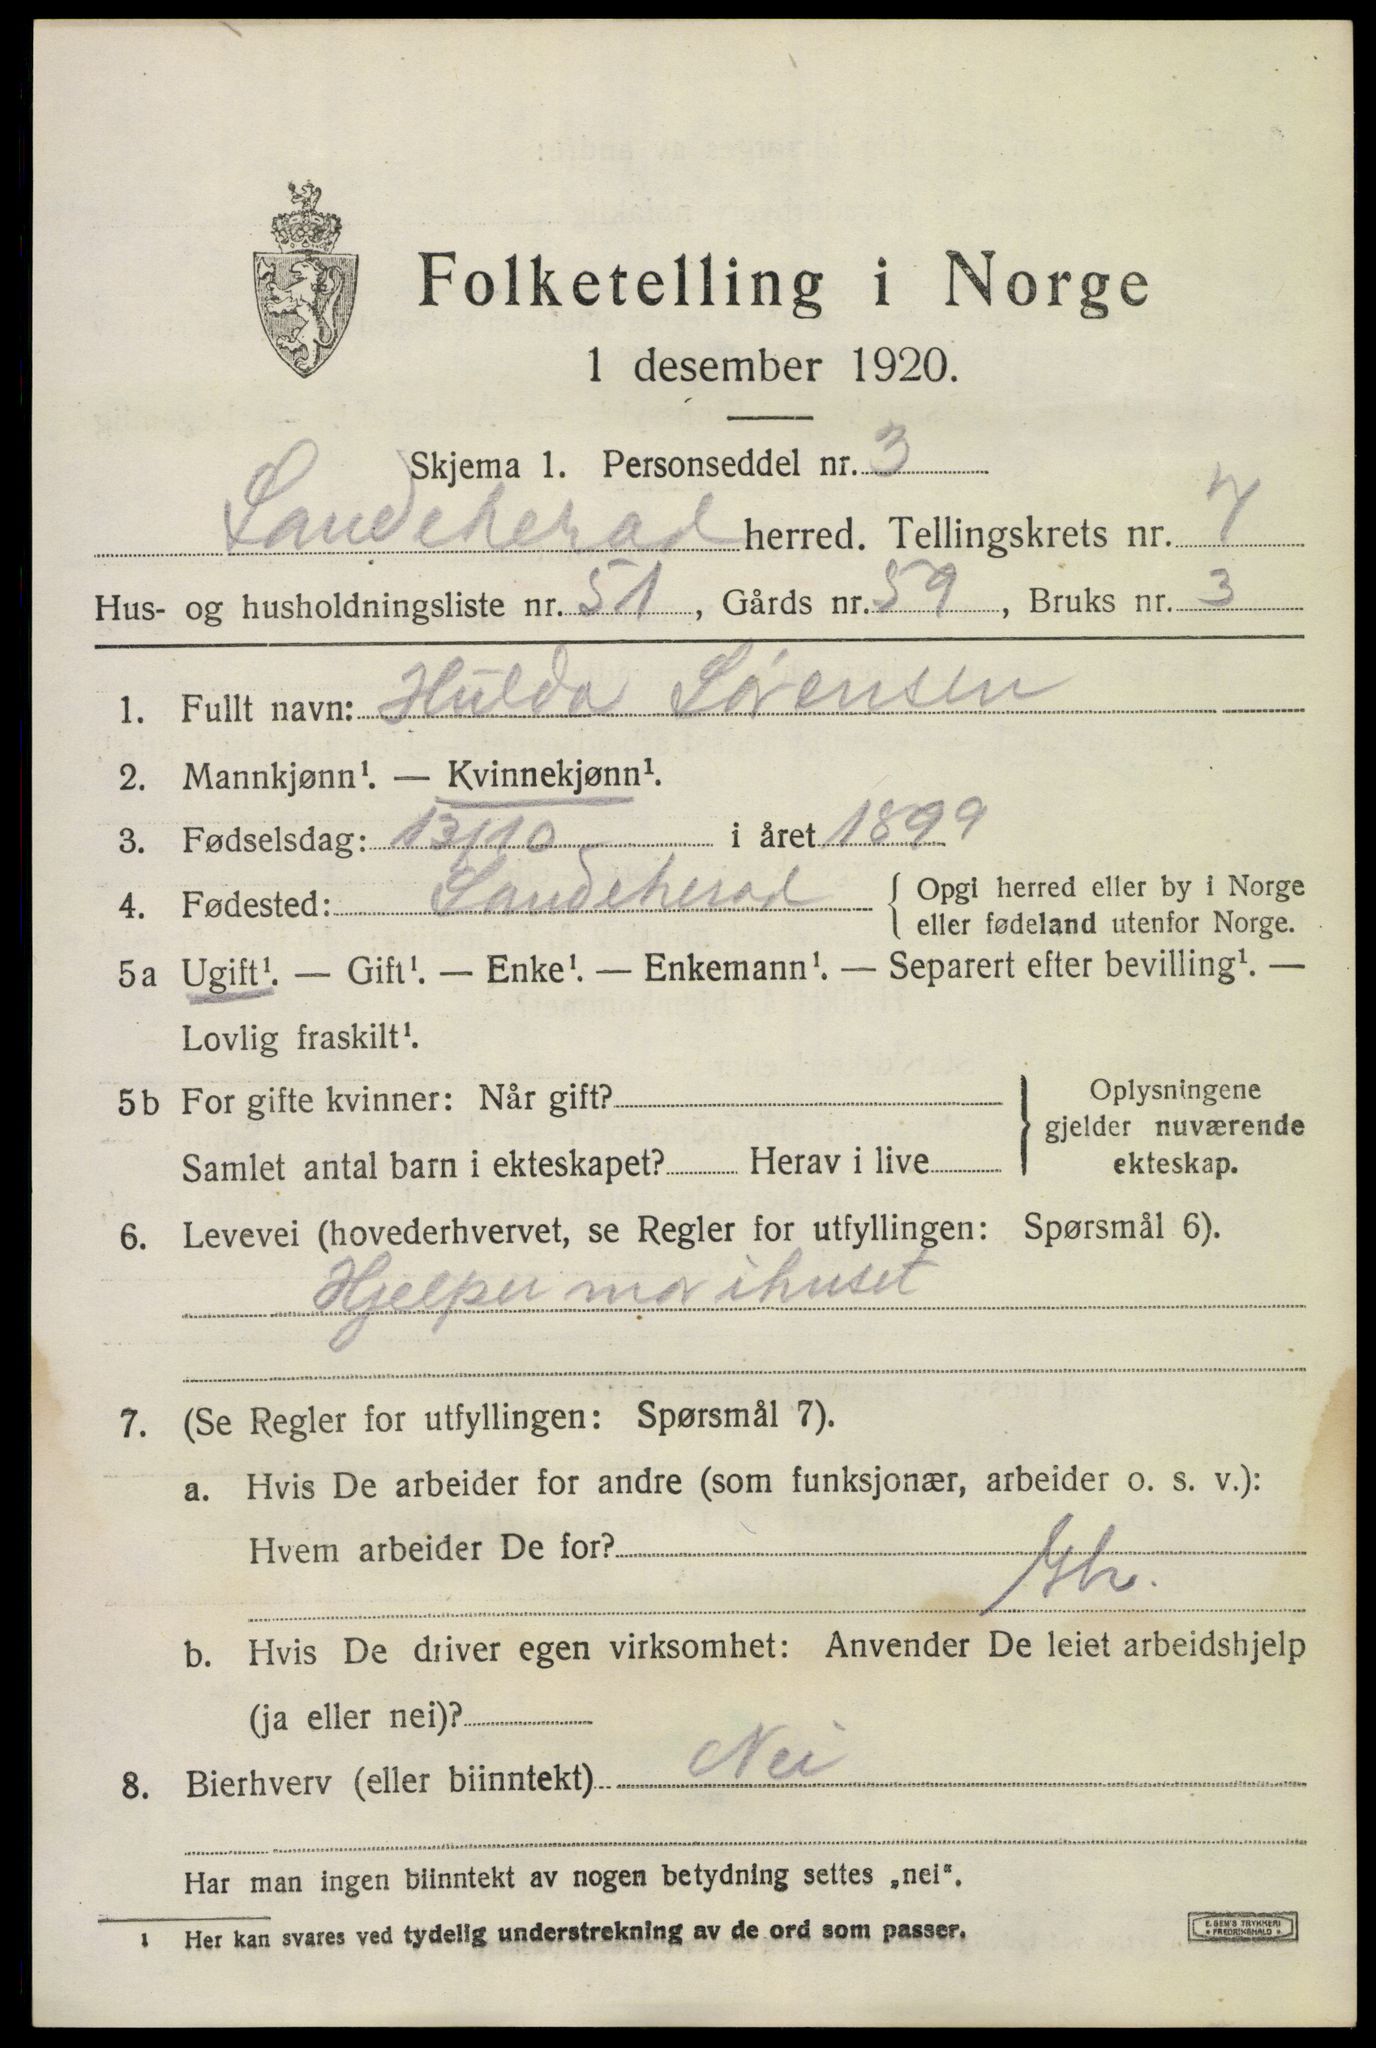 Folketelling i Norge
1 desember 1920.
Skjema 1. Personseddel nr. 3
Sandeherad herred. Tellingskrets nr. 7
Hus- og husholdningsliste nr. 51, Gårds nr. 59, Bruks nr. 3
1. Fullt navn: Hulda Sørensen
2. Mannkjønn¹. — Kvinnekjønn¹.
3. Fødselsdag: 13/10 i året 1899
4. Fødested: Sandeherad { Opgi herred eller by i Norge
eller fødeland utenfor Norge.
5a Ugift¹. — Gift¹. — Enke¹. — Enkemann¹. — Separert efter bevilling¹. —
Lovlig fraskilt¹.
5b For gifte kvinner: Når gift?
Samlet antal barn i ekteskapet? Herav i live
} Oplysningene
gjelder nuværende
ekteskap.
6. Levevei (hovederhvervet, se Regler for utfyllingen: Spørsmål 6).
Hjelper mor i huset
7. (Se Regler for utfyllingen: Spørsmål 7).
a. Hvis De arbeider for andre (som funksjonær, arbeider o. s. v.):
Hvem arbeider De for?
b. Hvis De driver egen virksomhet: Anvender De leiet arbeidshjelp
(ja eller nei)?
8. Bierhverv (eller biinntekt) Nei
Har man ingen biinntekt av nogen betydning settes „nei“.
1 Her kan svares ved tydelig understrekning av de ord som passer.
E. SEM'S TRYKKERI
* FREDRIKSHALD *